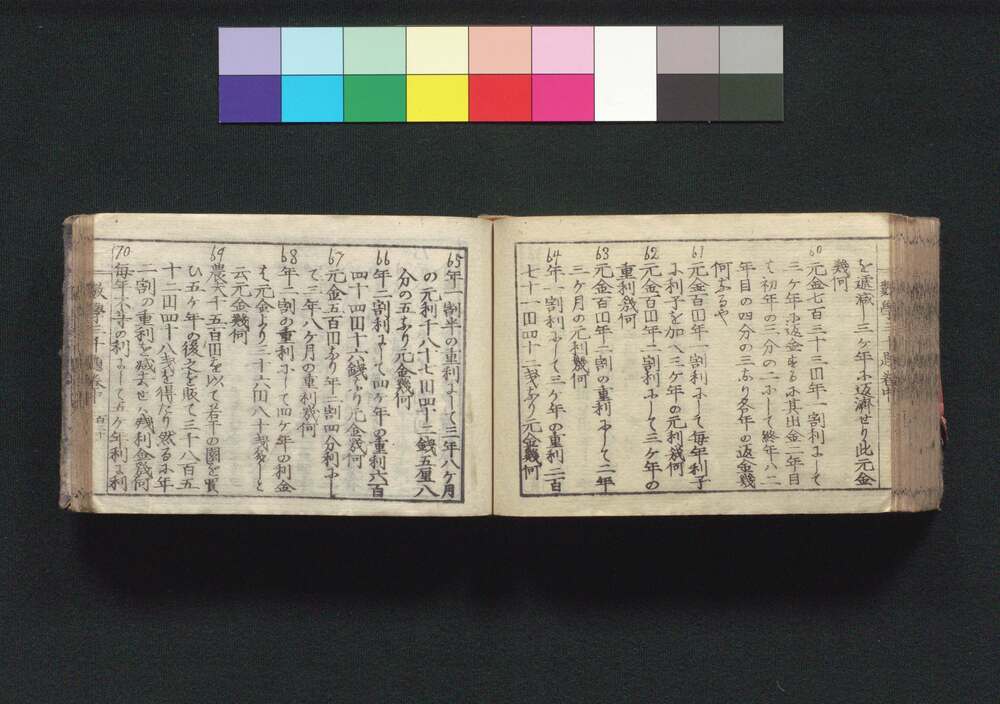 を遞減し三ヶ年に返濟せり此元金
幾何
60
元金七百三十三円年一割利にして
三ヶ年に返金する に其出金二年目
て初年の三分の二にして終年八二
年目の四分の三なり各年の返金幾
何なるや
61
元金百円年一割利にして每年利子
に利子を加へ三ヶ年の元利幾何
62
元金百円年二割利にして三ヶ年の
重利幾何
63
元金百円年二割の重利にして二年
三ヶ月の元利幾何
64
年一割利にして三ヶ年の重利二百
七十一円四十二銭なり元金幾何
65
年一割半の重利にして三年八ヶ月
の元利千八十七円四十二銭五厘八
分の五なり元金幾何
66
年二割利にして四ヶ年の重利六百
四十四円十六錢なり元金幾何
67
元金五百円なり年二割四分利に
て三年八ヶ月の重利幾何
68
年二割の重利にして四ヶ年の利金
は元金より三十六円八十銭多しと
云元金幾何
69
農夫千五百円を以て若干の園を買
ひ五ヶ年の後之を販て三千八百五
十二円四十八銭を得たり然るに年
二割の重利を減去せは殘利金幾何
70
每年六分の利にして五ヶ年利に利
數學三千題卷中
百十
數學三千題卷中